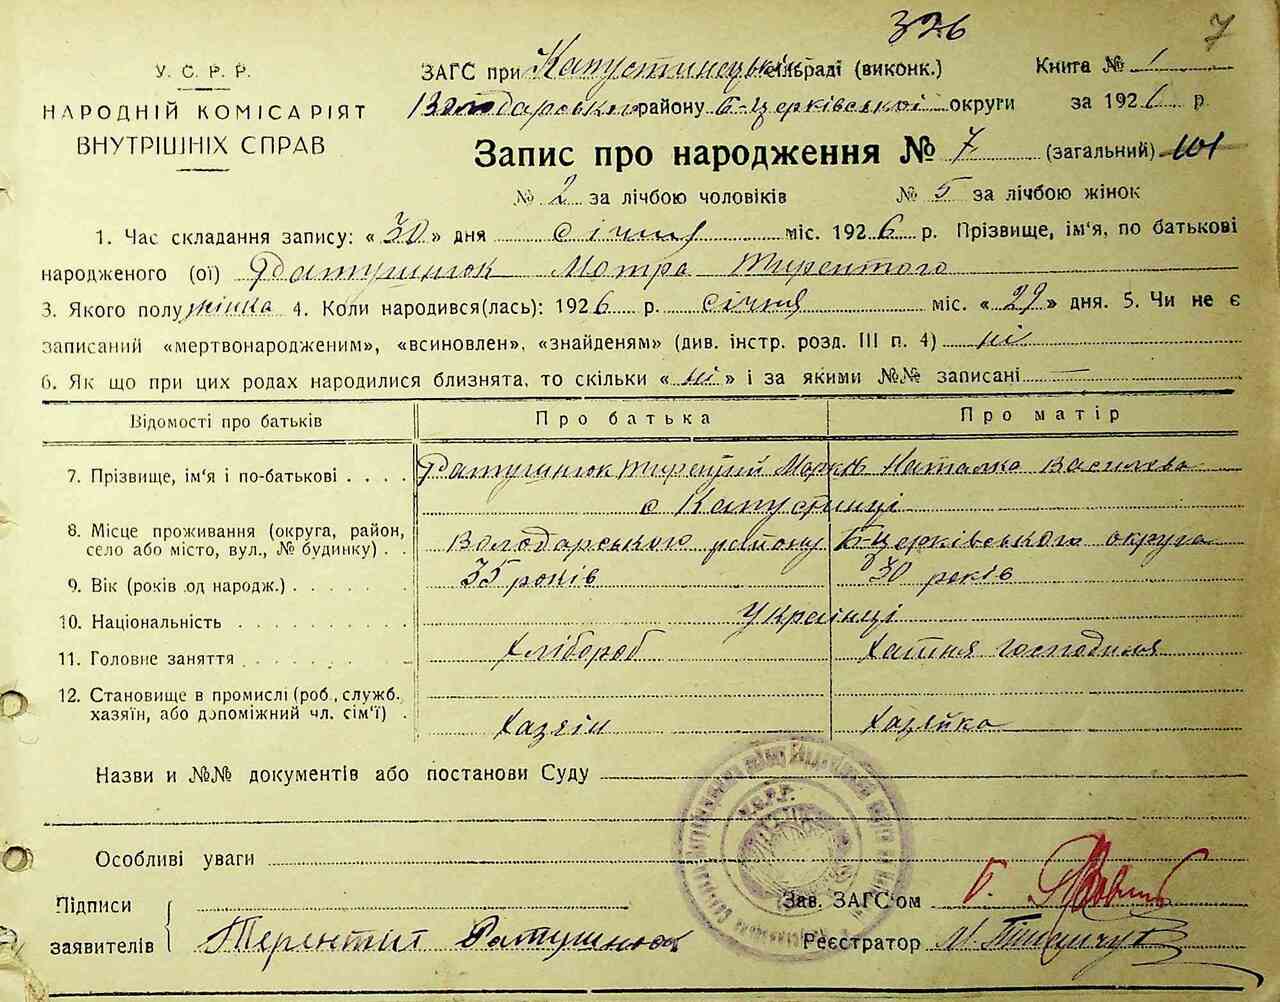 326
7
У. С. Р. Р.
НАРОДНІЙ КОМІСАРІЯТ
ВНУТРІШНІХ СПРАВ
ЗАГС при Капустинецькій сільраді (виконк.)
Книга № 1
Володарського району Б-Церківської округи за 1926 р.
Запис про народження № 7 (загальний) 101
№ 2 за лічбою чоловіків № 5 за лічбою жінок
1. Час складання запису: «30» дня січня міс. 1926 р. Прізвище, ім'я, по батькові
народженого (ої) Ратушнюк Мотря
3. Якого полу жінка 4. Коли народився(лась): 1926 р. січня міс. «29» дня. 5. Чи не є
записаний «мертвонародженим», «всиновлен», «знайденям» (див. інстр. розд. III п. 4) ні
6. Як що при цих родах народилися близнята, то скільки «ні» і за якими №№ записані —
Відомості про батьків Про батька Про матір
7. Прізвище, ім'я і по-батькові Ратушнюк Наталка Василева
с Капустинці
8. Місце проживання (округа, район,
село або місто, вул., № будинку) Володарського району Б-Церківського округа
9. Вік (років од народж.) 35 років 30 років
10. Національність Українці
11. Головне заняття Хлібороб Хатня господиня
12. Становище в промислі (роб., служб.
хазяїн, або допоміжний чл. сім'ї) Хазяїн Хазяйка
Назви и №№ документів або постанови Суду
Особливі уваги
Підписи
заявителів Терентий Ратушнюк
Зав. ЗАГС'ом
Реєстратор
У.С.Р.Р.